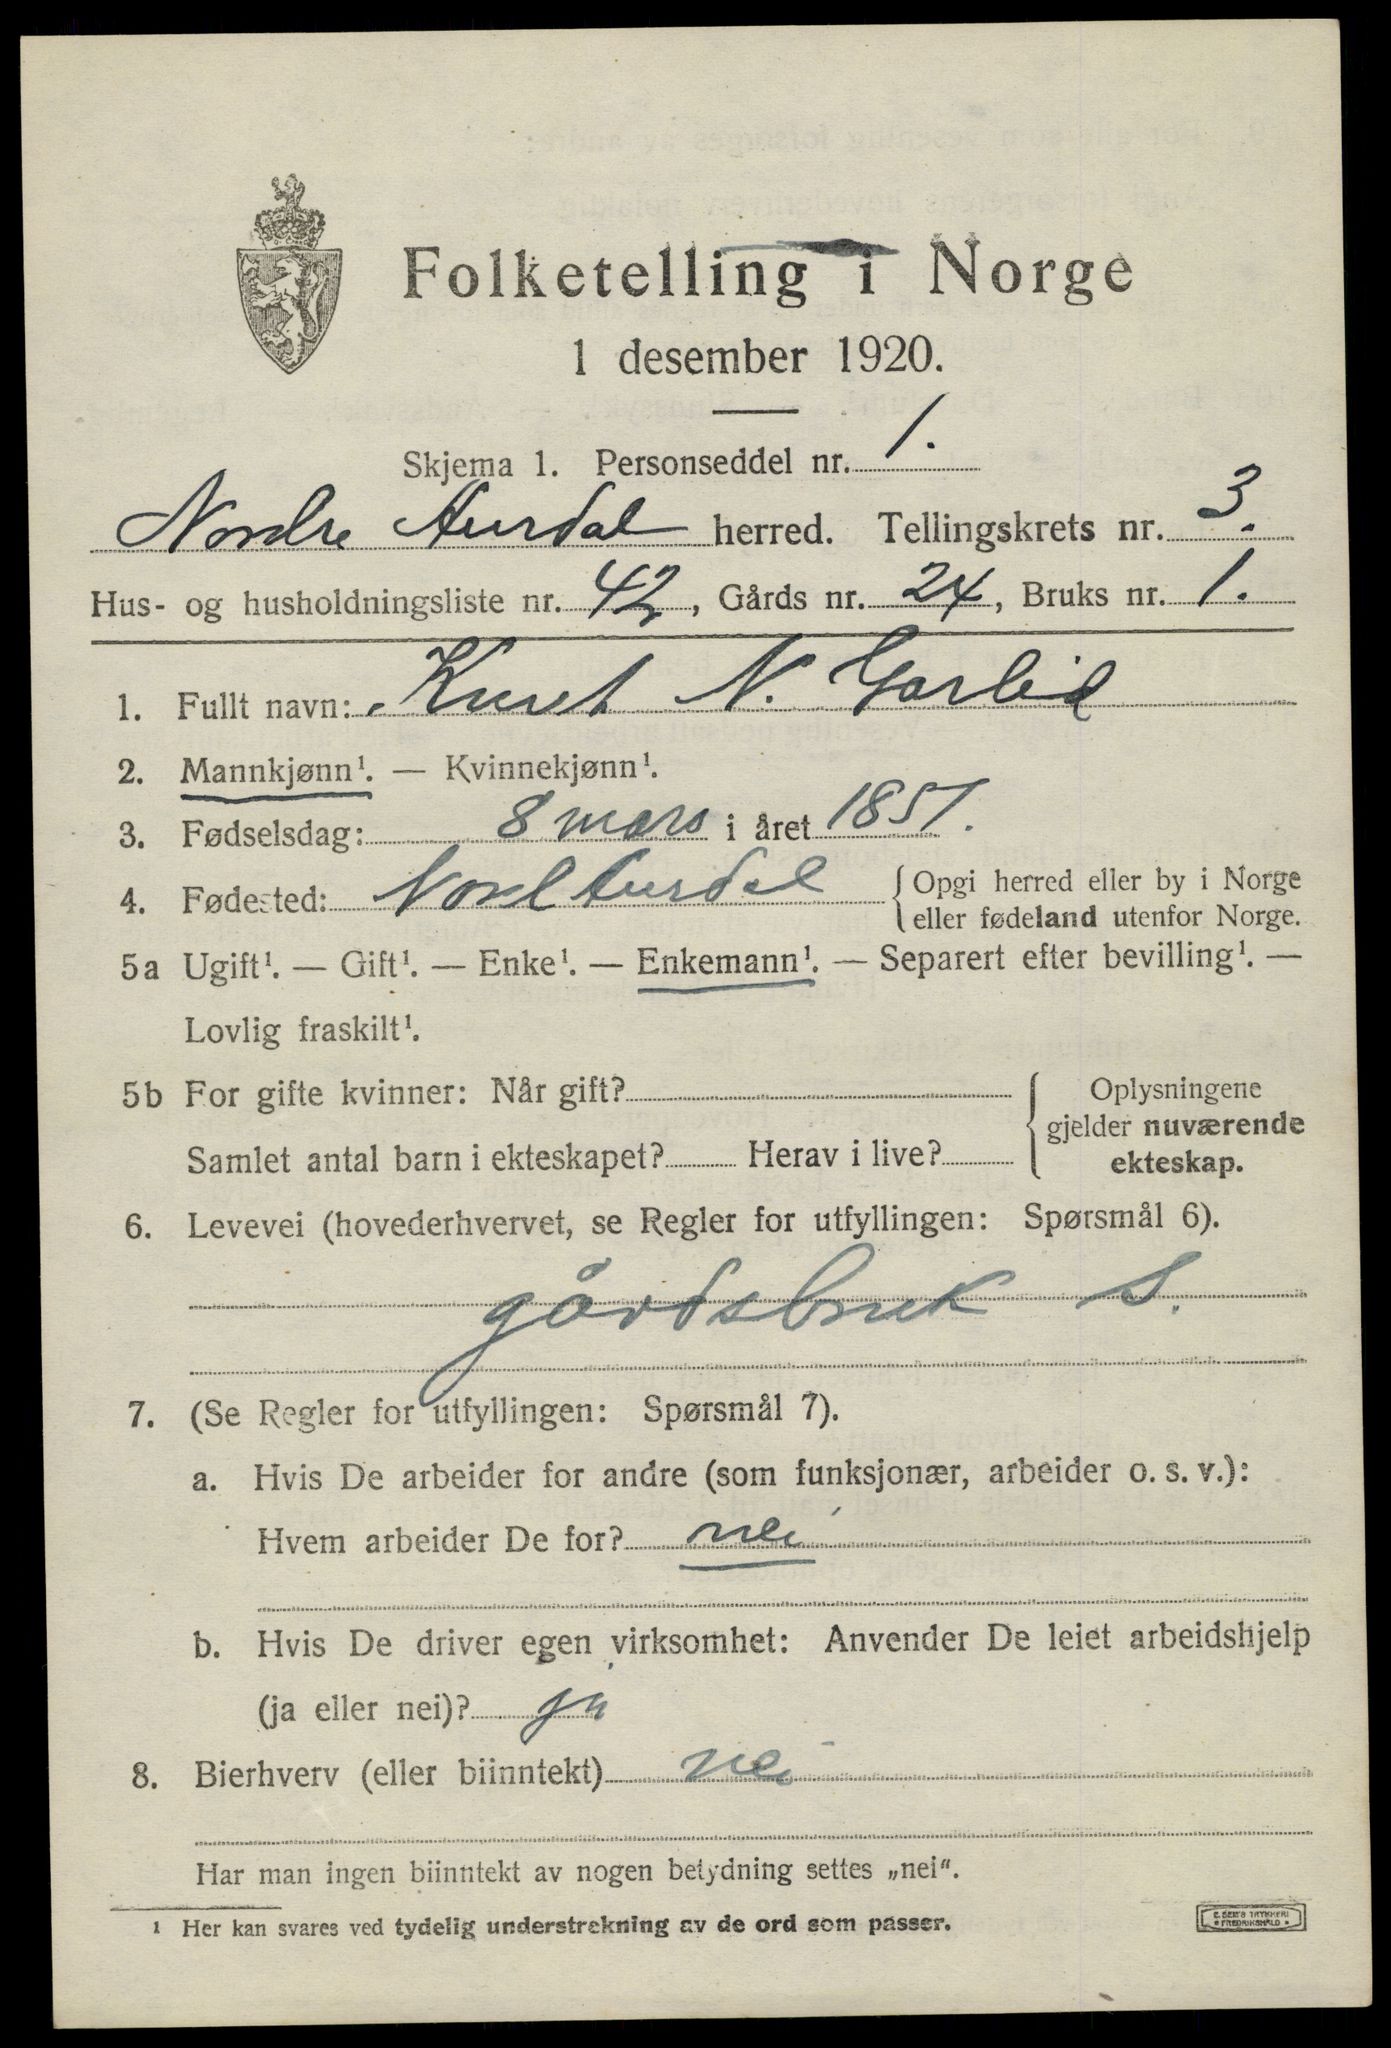 Folketelling i Norge
1 desember 1920.
Skjema 1. Personseddel nr. 1.
Nordre Aurdal herred. Tellingskrets nr. 3.
Hus- og husholdningsliste nr. 42, Gårds nr. 24, Bruks nr. 1.
1. Fullt navn: Knut N. Garlid
2. Mannkjønn¹. — Kvinnekjønn¹.
3. Fødselsdag: 8 mars i året 1851.
4. Fødested: Nord Aurdal { Opgi herred eller by i Norge
eller fødeland utenfor Norge.
5a Ugift¹. — Gift¹. — Enke¹. — Enkemann¹. — Separert efter bevilling¹. —
Lovlig fraskilt¹.
5b For gifte kvinner: Når gift?
Samlet antal barn i ekteskapet? Herav i live?
{ Oplysningene
gjelder nuværende
ekteskap.
6. Levevei (hovederhvervet, se Regler for utfyllingen: Spørsmål 6).
gårdsbruk S.
7. (Se Regler for utfyllingen: Spørsmål 7).
a. Hvis De arbeider for andre (som funksjonær, arbeider o. s. v.):
Hvem arbeider De for? nei
b. Hvis De driver egen virksomhet: Anvender De leiet arbeidshjelp
(ja eller nei)? ja
8. Bierhverv (eller biinntekt) nei
Har man ingen biinntekt av nogen betydning settes „nei“.
¹ Her kan svares ved tydelig understrekning av de ord som passer.
E. SEM'S TRYKKERI
FREDRIKSHALD